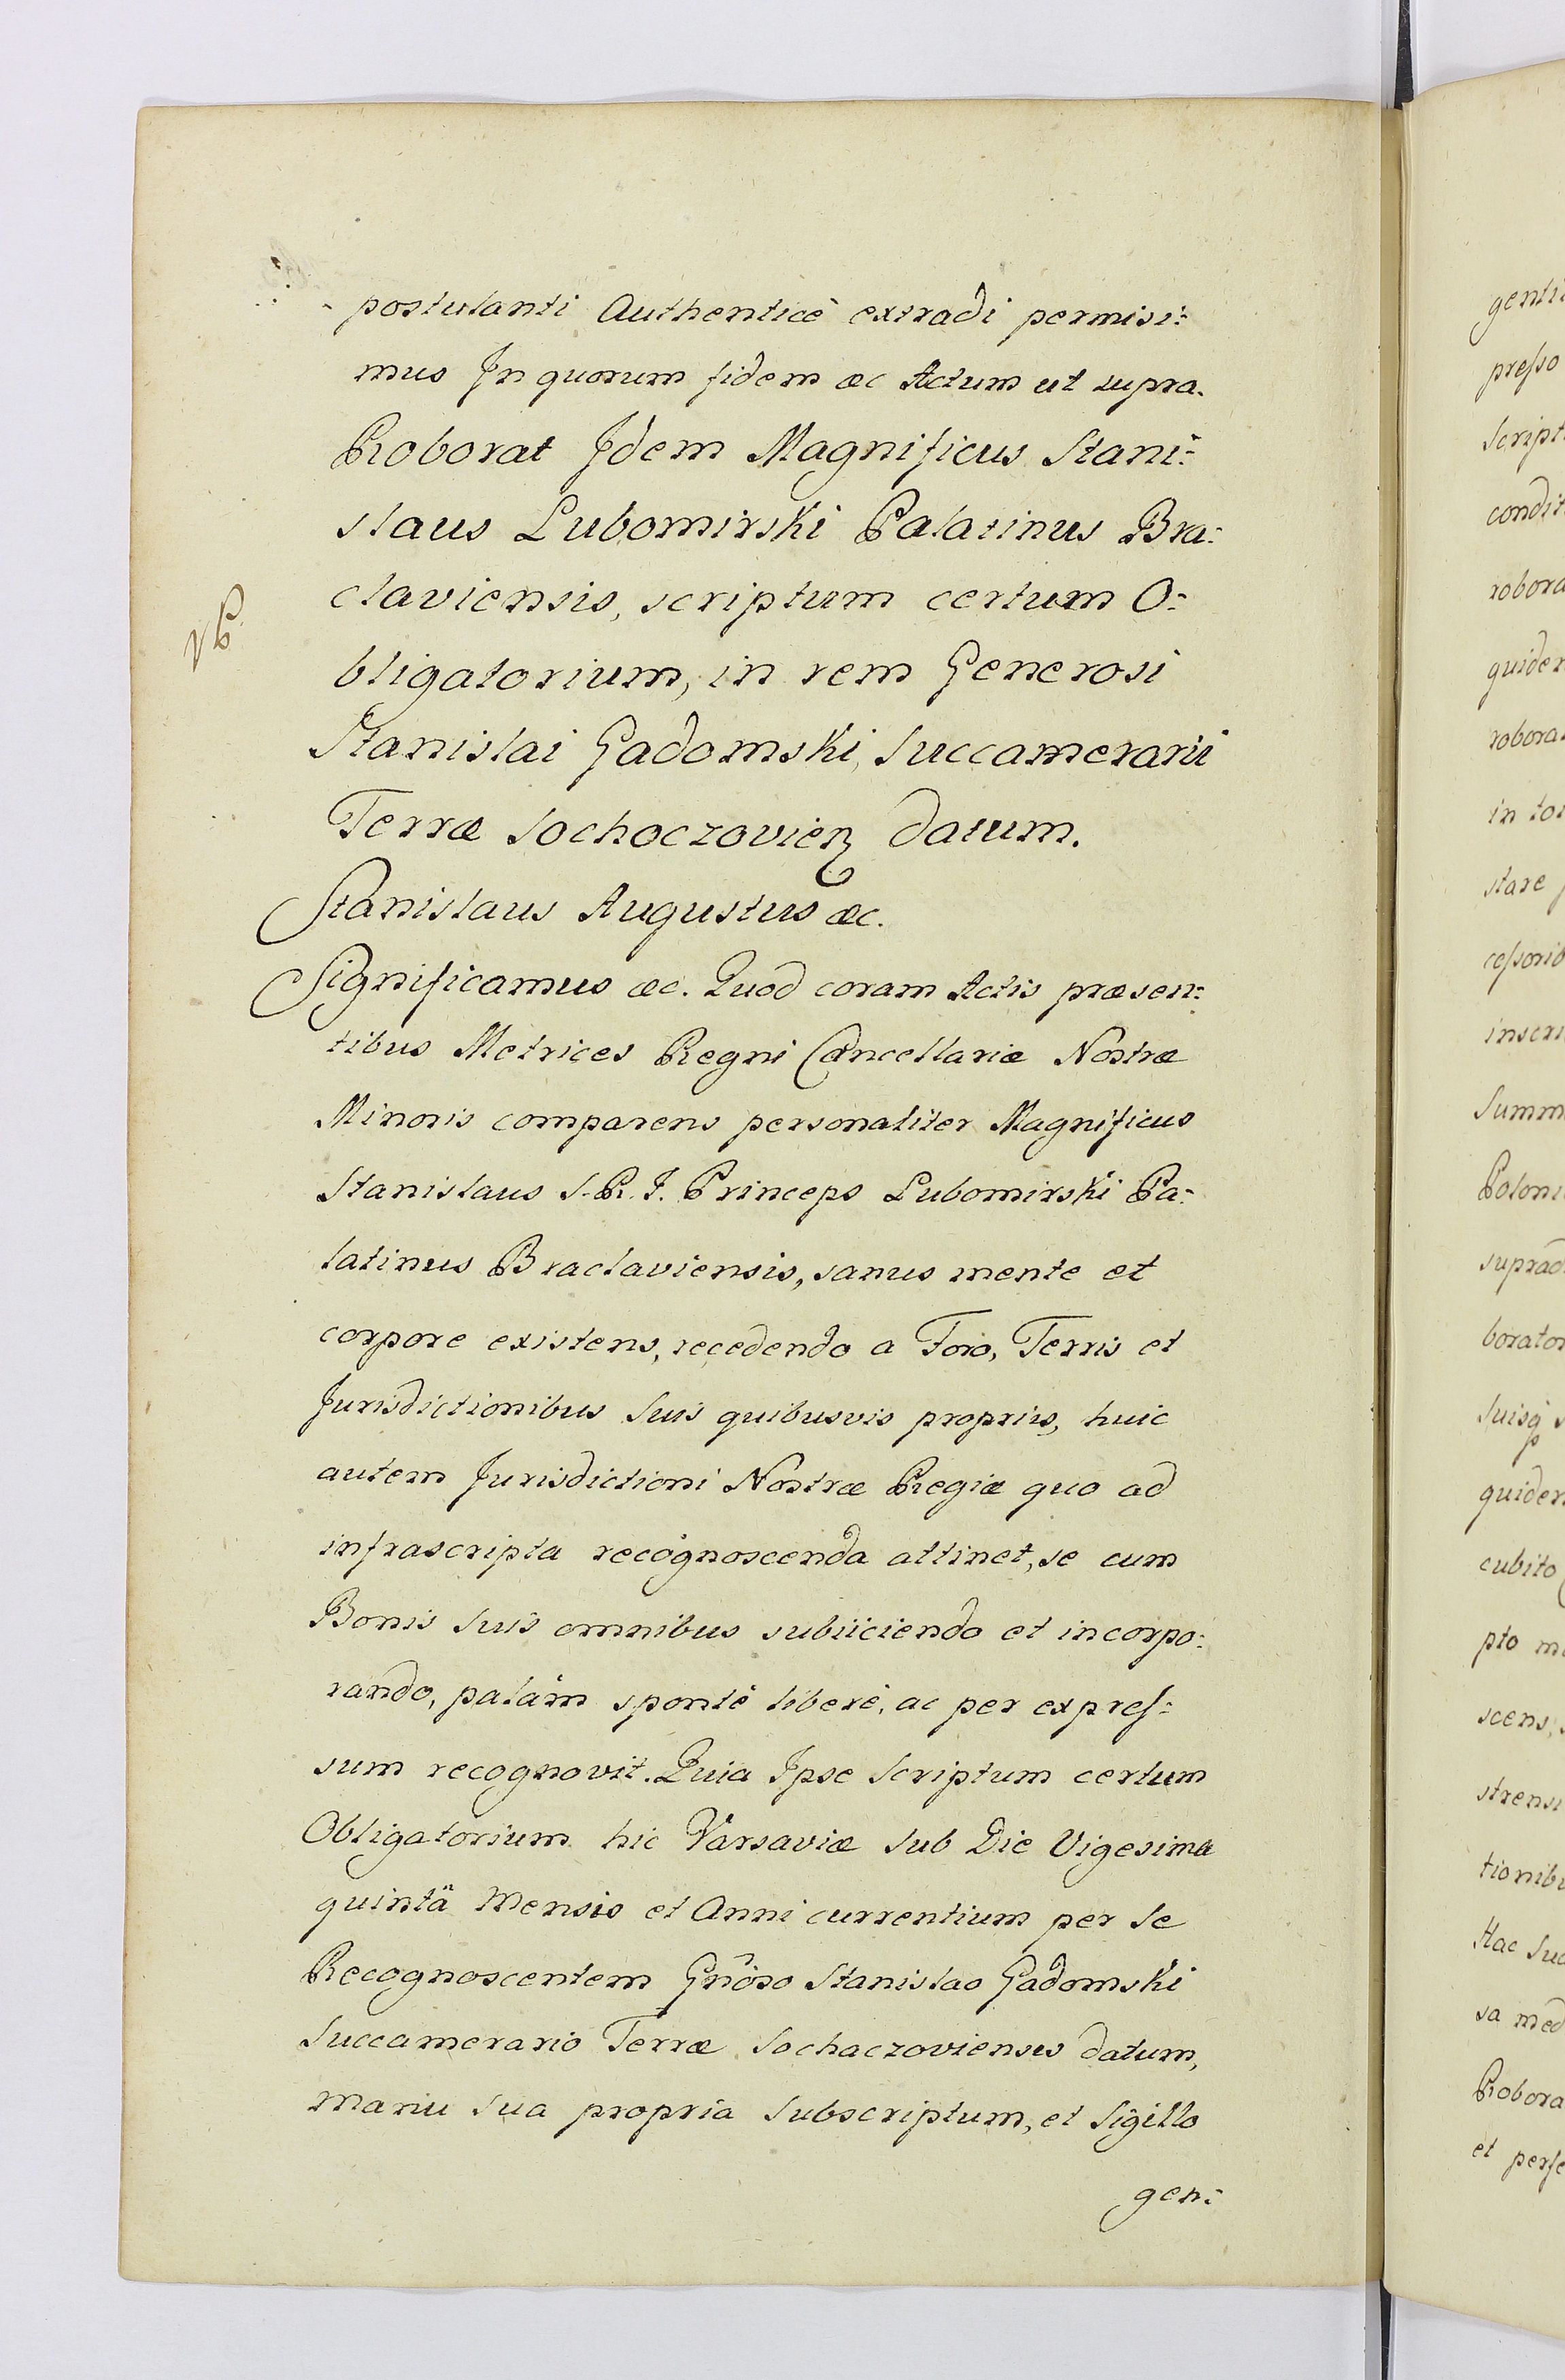 postulanti Authenticè extradi permisi:
mus In quorum fidem &c Actum ut supra.
Roborat Idem Magnificus Stani:
slaus Lubomirski Palatinus Bra:
claviensis, scriptum certum O:
bligatorium, in rem Generosi
Stanislai Gadomski, Succamerarii
Terræ Sochoczovien datum.
Stanislaus Augustus &c.
Significamus &c. Quod coram Actis præsen:
tibus Metrices Regni Cancellariæ Nostræ
Minoris comparens personaliter Magnificus
Stanislaus S. R. I. Princeps Lubomirski Pa:
latinus Braclaviensis, sanus mente et
corpore existens, recedendo a Foro, Terris et
Jurisdictionibus Suis quibusvis propriis, huic
autem Jurisdictioni Nostræ Regiæ quo ad
infrascripta recognoscenda attinet, se cum
Bonis Suis omnibus subiiciendo et incorpo:
rando, palàm spontè liberè, ac per expreſ:
sum recognovit. Quia Ipse Scriptum certum
Obligatorium hic Varsaviæ Sub Die Vigesima
quintâ Mensis et Anni currentium per Se
Recognoscentem Gñoso Stanislao Gadomski
Succamerario Terræ Sochaczoviensis datum,
Manu Sua propria Subscriptum, et Sigillo
gen:
genti
preſso
Script
condit
robora
quidem
robora
in to
stare
ceſsorib
inscri
Summ
Poloni
suprad
borator
Suisq
quidem
cubito
pto m
scens,
strensi
tionib
Hac Suc
sa med
Robora
et perfe